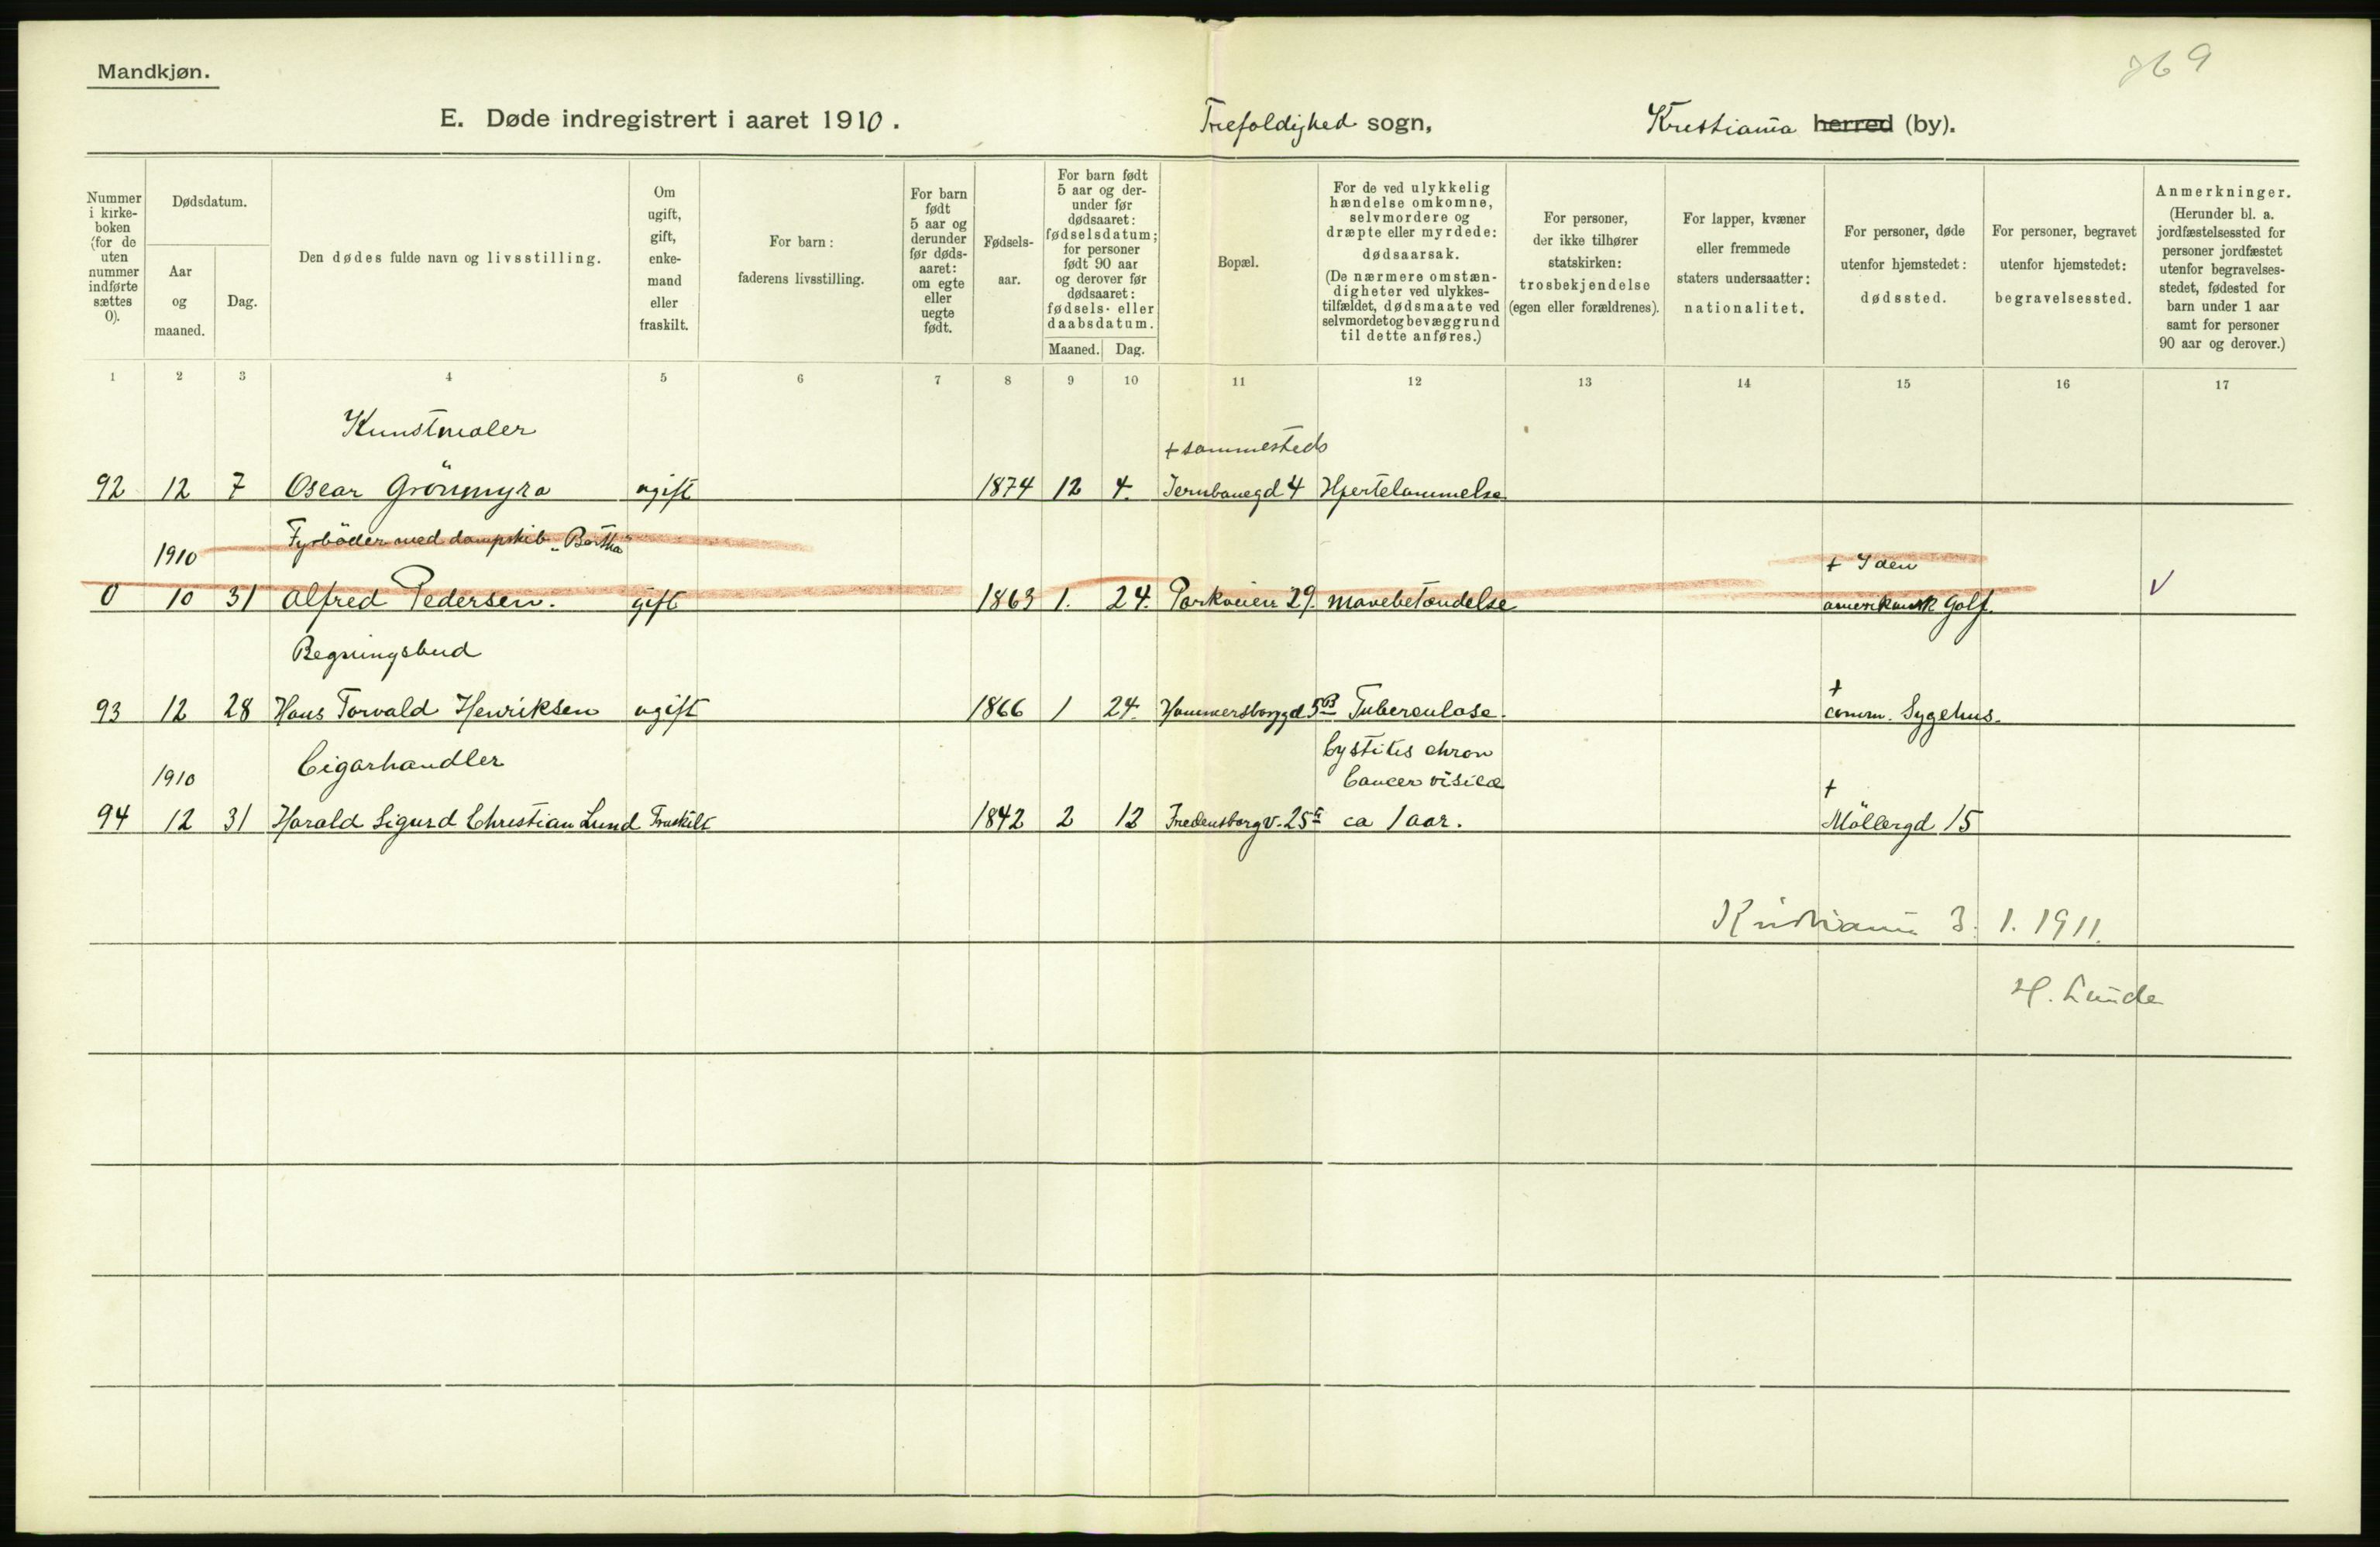 Mandkjøn.
769
E. Døde indregistrert i aaret 1910.
Trefoldighed sogn,
Kristiania herred (by).
Nummer i kirke-boken (for de uten nummer indførte sættes 0).
Dødsdatum.
Aar og maaned.
Dag.
Den dødes fulde navn og livsstilling.
Om ugift, gift, enke-mand eller fraskilt.
For barn: faderens livsstilling.
For barn født 5 aar og derunder før døds-aaret: om egte eller uegte født.
Fødsels-aar.
For barn født 5 aar og der-under før dødsaaret: fødselsdatum; for personer født 90 aar og derover før dødsaaret: fødsels- eller daabsdatum.
Maaned. Dag.
Bopæl.
For de ved ulykkelig hændelse omkomne, selvmordere og dræpte eller myrdede: dødsaarsak.
(De nærmere omstæn-digheter ved ulykkes-tilfældet, dødsmaate ved selvmordet og bevæggrund til dette anføres.)
For personer, der ikke tilhører statskirken: trosbekjendelse (egen eller forældrenes).
For lapper, kvæner eller fremmede staters undersaatter: nationalitet.
For personer, døde utenfor hjemstedet: dødssted.
For personer, begravet utenfor hjemstedet: begravelsessted.
Anmerkninger.
(Herunder bl. a. jordfæstelsessted for personer jordfæstet utenfor begravelses-stedet, fødested for barn under 1 aar samt for personer 90 aar og derover.)
1 2 3 4 5 6 7 8 9 10 11 12 13 14 15 16 17
Kunstmaler
+ sammesteds
92 12 7 Oscar Grönmyra ugift 1874 12 4. Jernbanegd 4 Hjertelammelse
1910 Fyrböder med dampskib "Bertha"
+ I den
0 10 31 Alfred Pedersen. gift 1863 1. 24. Parkveien 29. mavebetændelse amerikansk Golf. V
Regningsbud
+
93 12 28 Hans Torvald Henriksen ugift 1866 1 24. Hammersborggd 5 B Tuberculose. comm. Sygehus.
Cystitis chron
1910 Cigarhandler Cancer visicæ
+
94 12 31 Harald Sigurd Christian Lund Fraskilt 1842 2 12 Fredensborgv. 25 ca 1 aar. Möllergd 15
Kristiania 3. 1. 1911.
H. Lunde